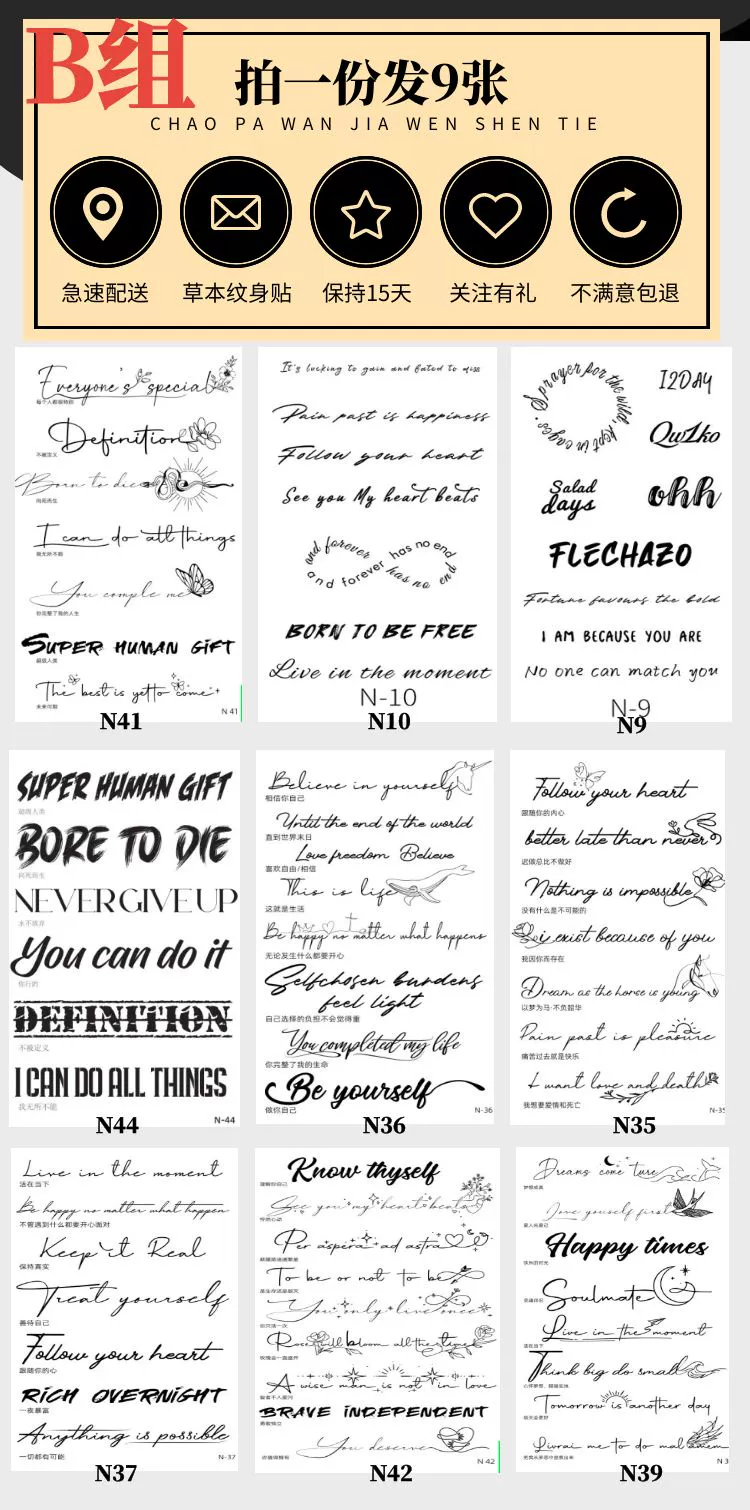 B组
拍一份发9张
CHAO PA WAN JIA WEN SHEN TIE
急速配送
草本纹身贴
保持15天
关注有礼
不满意包退
Everyone's special
每个人都很特别
Definition
不被定义
Born to die
向死而生
I can do all things
我无所不能
You comple me
你完整了我的人生
SUPER HUMAN GIFT
超级人类
The best is yet to come
未来可期
N 41
N41
It's lucking to gain and fated to miss
Pain past is happiness
Follow your heart
See you My heart beats
and forever has no end
and forever has no end
BORN TO BE FREE
Live in the moment
N-10
N10
A prayer for the wild, kept in cages
I2DAY
Qw1ko
Salad
days
ohh
FLECHAZO
Fortune favours the bold
I AM BECAUSE YOU ARE
No one can match you
N-9
N9
SUPER HUMAN GIFT
超级人类
BORE TO DIE
向死而生
NEVER GIVE UP
永不放弃
You can do it
你行的
DEFINITION
不被定义
I CAN DO ALL THINGS
我无所不能
N-44
N44
Believe in yourself
相信你自己
Until the end of the world
直到世界末日
Love freedom Believe
喜欢自由/相信
This is life
这就是生活
Be happy no matter what happens
无论发生什么都要开心
Selfchosen burdens
feel light
自己选择的负担不会觉得重
You completed my life
你完整了我的生命
Be yourself
做你自己
N-36
N36
Follow your heart
跟随你的内心
better late than never
迟做总比不做好
Nothing is impossible
没有什么是不可能的
i exist because of you
我因你而存在
Dream as the horse is young
以梦为马·不负韶华
Pain past is pleasure
痛苦过去就是快乐
I want love and death
我想要爱情和死亡
N-35
N35
Live in the moment
活在当下
Be happy no matter what happen
不管遇到什么都要开心面对
Keep it Real
保持真实
Treat yourself
善待自己
Follow your heart
跟随你的心
RICH OVERNIGHT
一夜暴富
Anything is possible
一切都有可能
N-37
N37
Know thyself
理解你自己
See you my heart beats
怦然心动
Per aspera ad astra
To be or not to be
You only live once
Roses will bloom all the time
A wise man is not in love
智者不入爱河
BRAVE INDEPENDENT
勇敢独立
You deserve
你值得拥有
N 42
N42
Dreams come ture
梦想成真
Love yourself first
Happy times
快乐的时光
Soulmate
Live in the moment
活在当下
Think big do small
Tomorrow is another day
Livrai me to do mal amem
N 3
N39